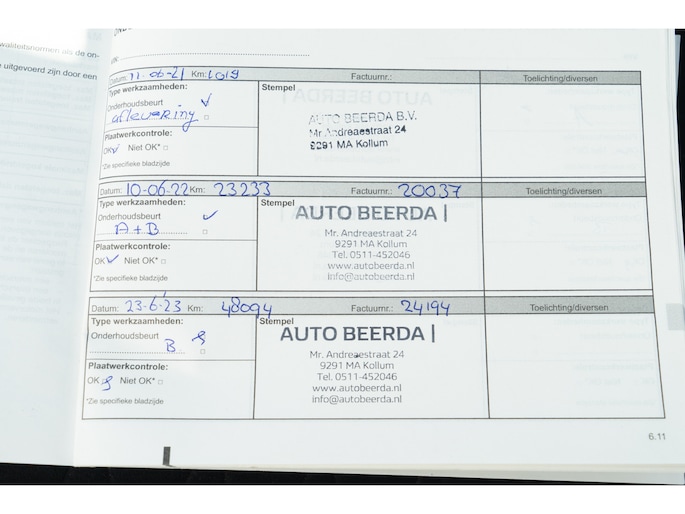 waliteitsnormen als de on-
uitgevoerd zijn door een
Datum: 11-06-21 Km: 1019 Factuurnr.: Toelichting/diversen
Type werkzaamheden: Stempel
Onderhoudsbeurt
aflevering
Plaatwerkcontrole:
OK Niet OK*
*Zie specifieke bladzijde
AUTO BEERDA B.V.
Mr. Andreaestraat 24
9291 MA Kollum
Datum: 10-06-22 Km: 23233 Factuurnr.: 20037 Toelichting/diversen
Type werkzaamheden: Stempel
Onderhoudsbeurt
A+B
Plaatwerkcontrole:
OK Niet OK*
*Zie specifieke bladzijde
AUTO BEERDA |
Mr. Andreaestraat 24
9291 MA Kollum
Tel. 0511-452046
www.autobeerda.nl
info@autobeerda.nl
Datum: 23-6-23 Km: 48094 Factuurnr.: 24194 Toelichting/diversen
Type werkzaamheden: Stempel
Onderhoudsbeurt
B
Plaatwerkcontrole:
OK Niet OK*
*Zie specifieke bladzijde
AUTO BEERDA |
Mr. Andreaestraat 24
9291 MA Kollum
Tel. 0511-452046
www.autobeerda.nl
info@autobeerda.nl
6.11